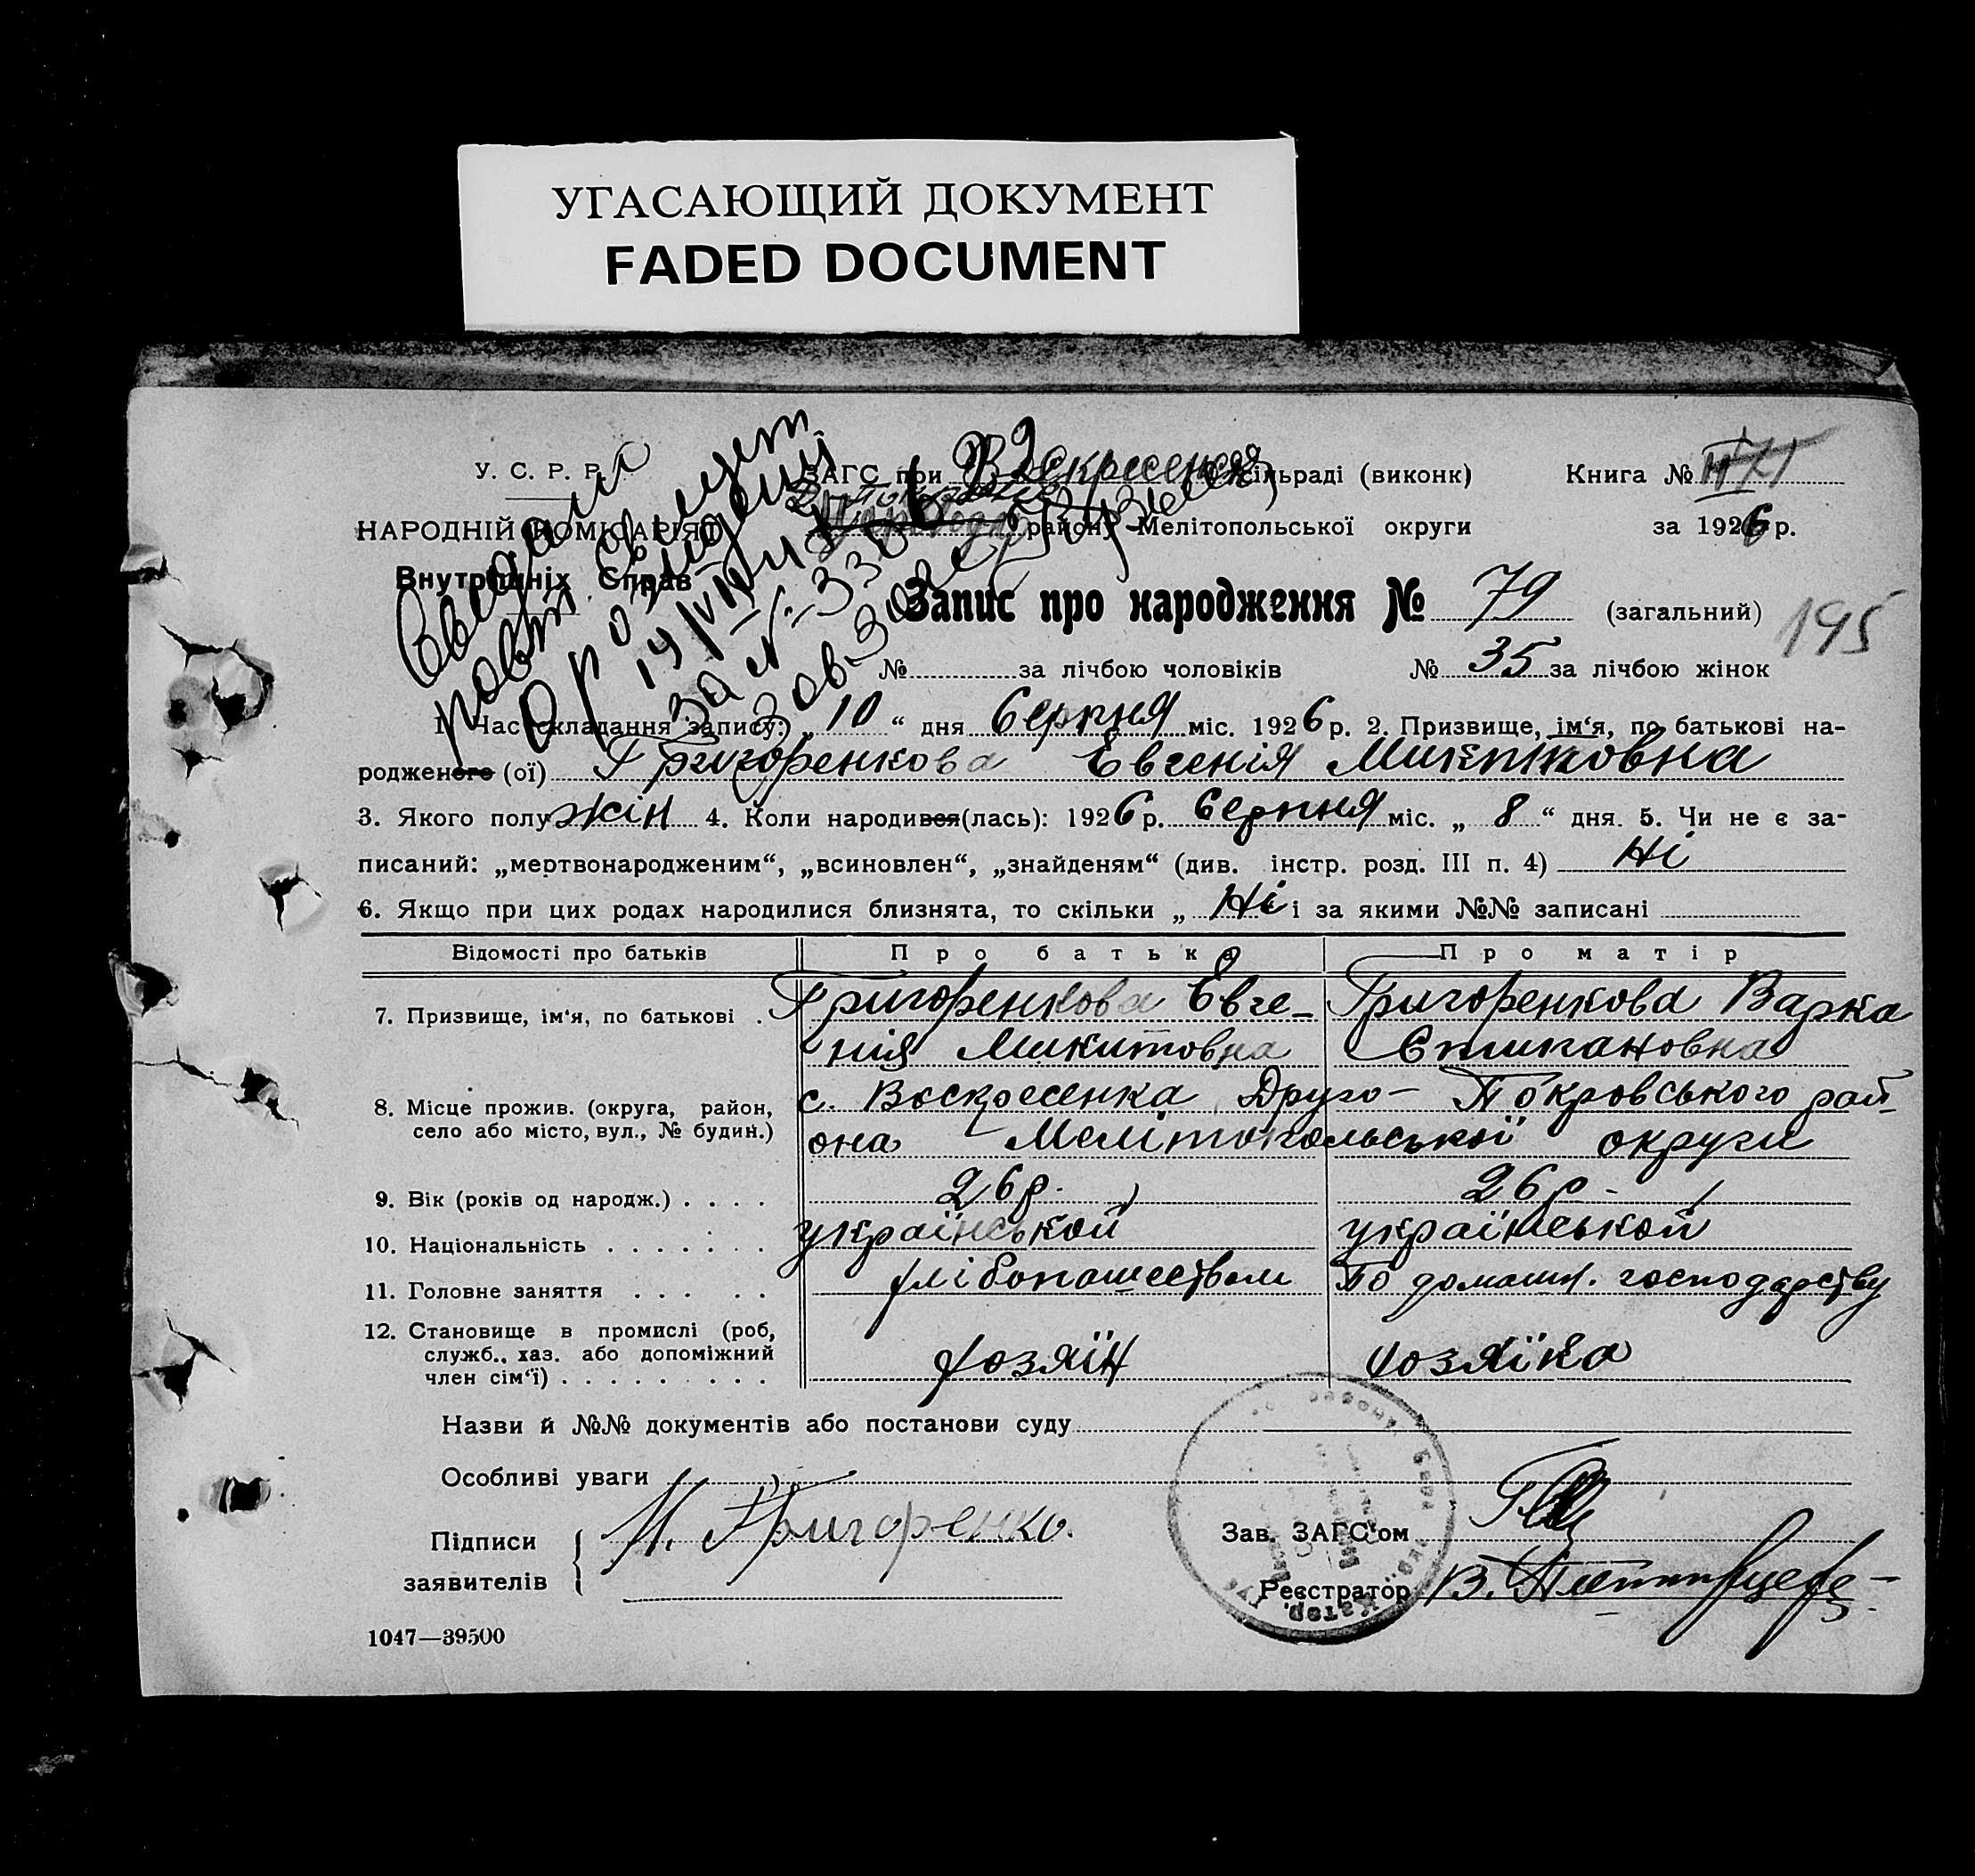 УГАСАЮЩИЙ ДОКУМЕНТ
FADED DOCUMENT
У. С. Р. Р.
НАРОДНІЙ КОМІСАРІЯТ
Внутрішніх Справ
ЗАГС при Воскресенск сільраді (виконк)
району Мелітопольської округи
Книга №
за 1926 р.
о рождении
за №
Запис про народження № 79 (загальний)
195
№ за лічбою чоловіків № 35 за лічбою жінок
1. Час складання запису: „ 10 “ дня Серпня міс. 1926 р. 2. Призвище, ім‘я, по батькові на-
родженого (ої) Григоренкова Евгенія Микитовна
3. Якого полу жін 4. Коли народився(лась): 1926 р. Серпня міс. „ 8 “ дня. 5. Чи не є за-
писаний: „мертвонародженим“, „всиновлен“, „знайденям“ (див. інстр. розд. III п. 4) Ні
6. Якщо при цих родах народилися близнята, то скільки „ Ні і за якими №№ записані
Відомості про батьків Про батька Про матір
7. Призвище, ім‘я, по батькові . Григоренкова Евге- Григоренкова Варка
нія Микитовна Степановна
8. Місце прожив. (округа, район, с. Воскресенка Друго- Покровського рай-
село або місто, вул., № будин.) она Мелітопольської округи
9. Вік (років од народж.) . . . . 26 р. 26 р.
10. Національність . . . . . . . української української
11. Головне заняття . . . . . хлібопашеством По домашн. господарству
12. Становище в промислі (роб,
служб., хаз. або допоміжний хозяїн хозяїка
член сім‘ї) . . . . . . . . .
Назви й №№ документів або постанови суду
Особливі уваги
Підписи М. Григоренко.
заявителів
Зав. ЗАГС‘ом
Реєстратор
1047—39500